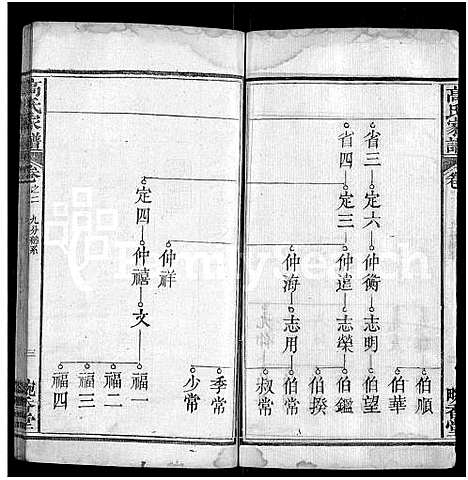 高氏家譜
卷
省三
定六
仲衡
志明
伯順
伯華
伯望
省四
定三
仲達
志榮
伯鑑
伯揆
仲海
志用
伯常
叔常
季常
少常
仲祥
定四
仲禧
文
福一
福二
福三
福四
高氏家譜
卷之二
九分總系
三
familysearch